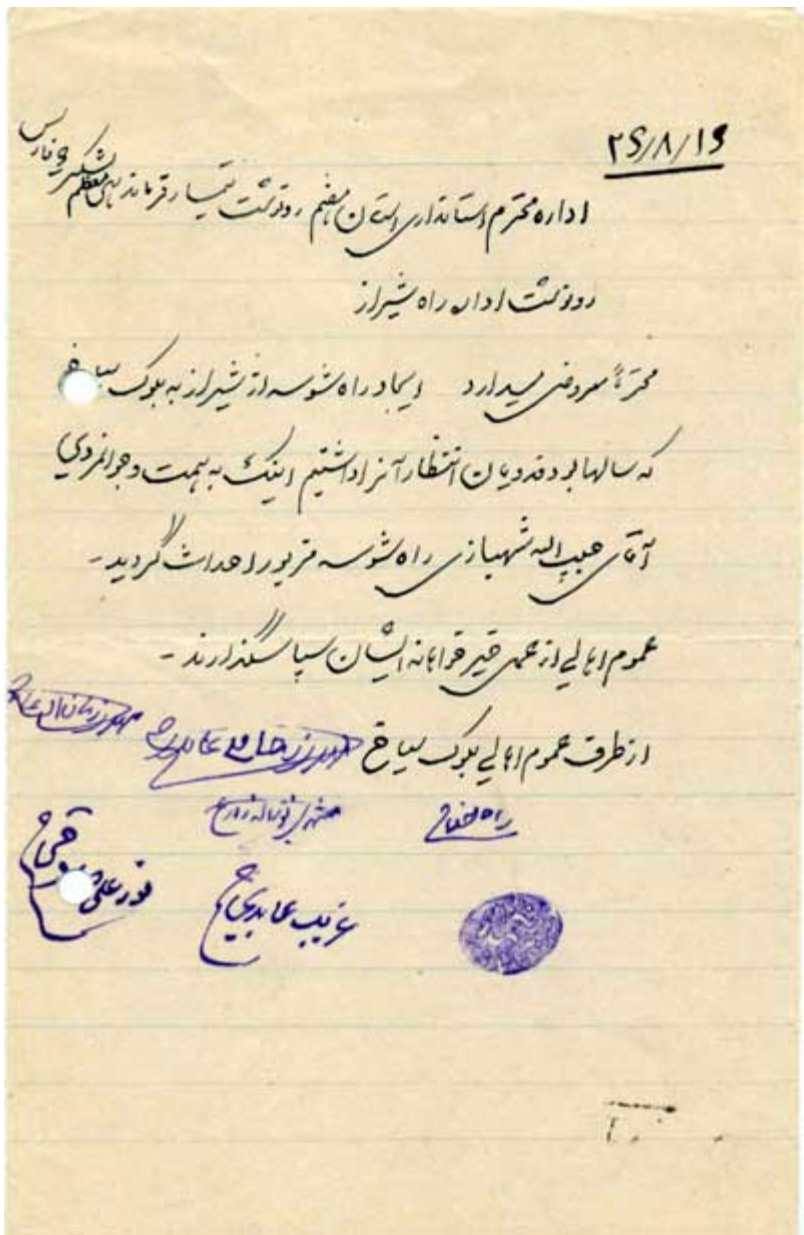 ۲۶/۸/۱۶
اداره محترم استانداری استان هفتم رونوشت تیمسار فرماندهی معظم لشکر ۶ فارس
رونوشت اداره راه شیراز
محترماً معروض میدارد ایجاد راه شوسه از شیراز به بلوک سیاخ
که سالها بود فدویان انتظار آنرا داشتیم اینک به همت و جوانمردی
آقای حبیب اله شهبازی راه شوسه مزبور احداث گردید -
عموم اهالی از عمل خیرخواهانه ایشان سپاسگذارند -
از طرف عموم اهالی بلوک سیاخ
غریب عابدی
نورعلی